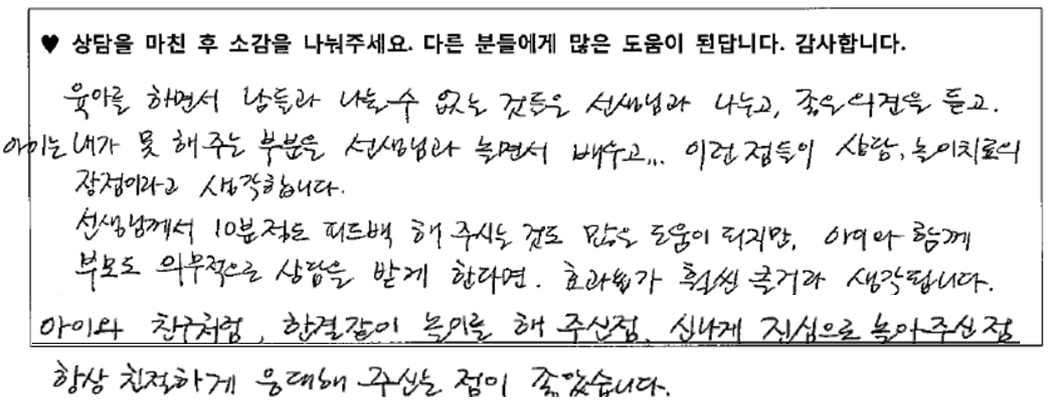 ♥ 상담을 마친 후 소감을 나눠주세요. 다른 분들에게 많은 도움이 된답니다. 감사합니다.
육아를 하면서 남들과 나눌 수 없는 것들을 선생님과 나누고, 좋은 의견을 듣고.
아이는 내가 못 해주는 부분을 선생님과 놀면서 배우고... 이런 점들이 상담, 놀이치료의
장점이라고 생각합니다.
선생님께서 10분정도 피드백 해 주시는 것도 많은 도움이 되지만, 아이와 함께
부모도 의무적으로 상담을 받게 한다면. 효과가 훨씬 클거라 생각됩니다.
아이와 친구처럼, 한결같이 놀이를 해 주신점, 신나게 진심으로 놀아주신 점
항상 친절하게 응대해 주신는 점이 좋았습니다.